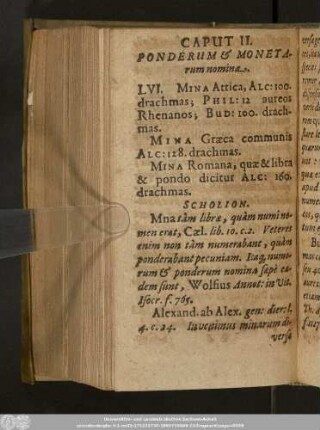 CAPUT II.
PONDERUM & MONETA-
rum nomina.
LVI. MINA Attica, ALC: 100.
drachmas; PHIL: 12 aureos
Rhenanos; BUD: 100. drach-
mas.
MINA Græca communis
ALC: 128. drachmas.
MINA Romana, quæ & libra
& pondo dicitur ALC: 160.
drachmas.
SCHOLION.
Mna tàm libræ, quàm numi no-
men erat, Cæl. lib. 10. c. 2. Veteres
enim non tàm numerabant, quàm
ponderabant pecuniam. Itaq, numo-
rum & ponderum nomina sæpè ea-
dem sunt, Wolfius Annot: in Vit.
Isocr. f. 765.
Alexand. ab Alex. gen: dier: l.
4. c. 24. Invenimus minarum di-
versa
Universitäts- und Landesbibliothek Sachsen-Anhalt